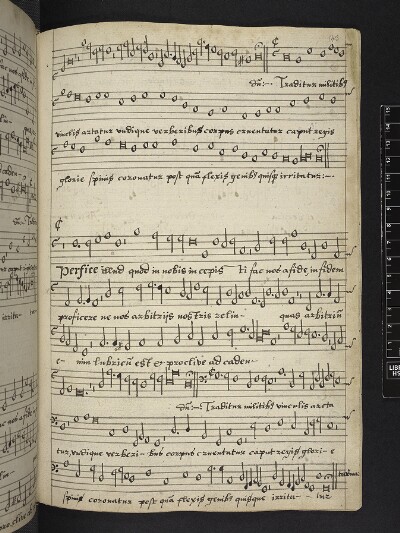 Du:-. Traditur militibꝰ
vinclis artatur undique verberibus corpus cruentatur caput regis
glorie spinis coronatur post quā flexis genibꝰ quisq irritatur:-
Perfice Domine quod in nobis in cepis Ti fac nos a fide in fidem
proficere ne nos arbitrijs nostris relin- quas arbitriū
e- nim lubricū est et proclive ad caden-
Du:-. Traditur militibꝰ vinculis arcta
tur, vndique verberi- bus corpus cruentatur caput regis glori- e
spinis coronatur post quā flexis genibꝰ quisque irrita- tur